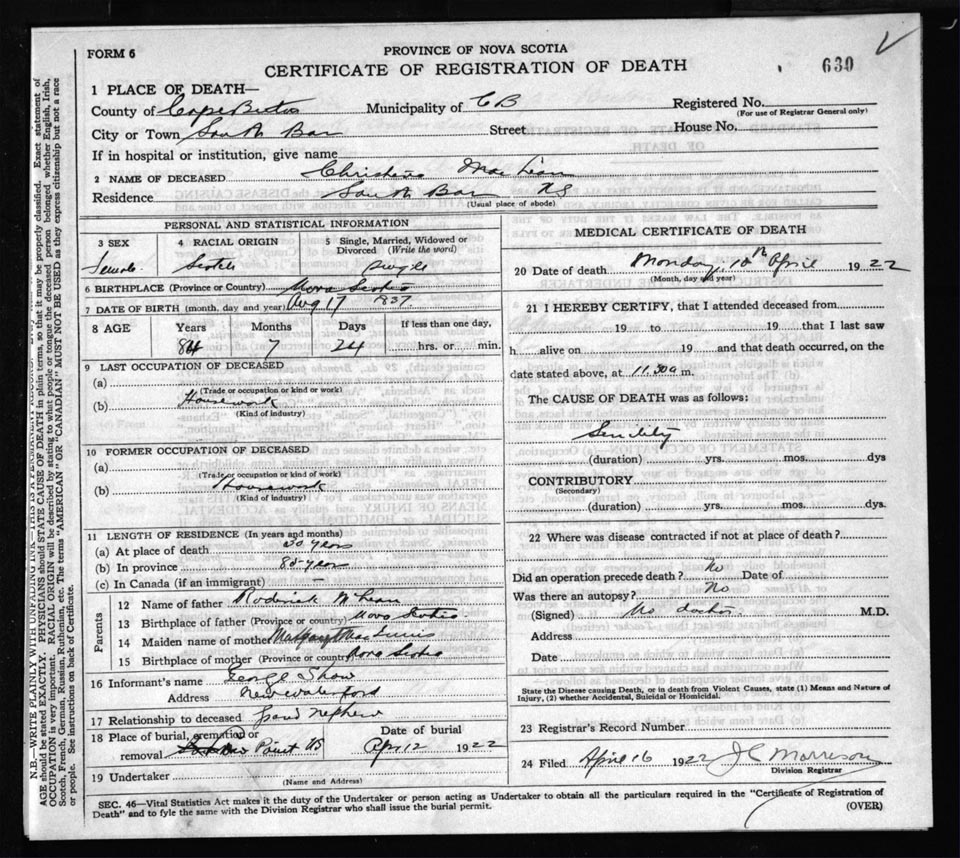 FORM 6
PROVINCE OF NOVA SCOTIA
CERTIFICATE OF REGISTRATION OF DEATH
630
1 PLACE OF DEATH—
County of Cape Breton Municipality of C B Registered No.
(For use of Registrar General only)
City or Town South Bar Street House No.
If in hospital or institution, give name
2 NAME OF DECEASED Christena MacLean
Residence South Bar NS
(Usual place of abode)
PERSONAL AND STATISTICAL INFORMATION
3 SEX 4 RACIAL ORIGIN 5 Single, Married, Widowed or Divorced (Write the word)
Female Scotch Single
6 BIRTHPLACE (Province or Country) Nova Scotia
7 DATE OF BIRTH (month, day and year) Aug 17 1837
8 AGE Years Months Days If less than one day,
84 7 24 hrs. or min.
9 LAST OCCUPATION OF DECEASED
(a)
(Trade or occupation or kind of work)
(b) Housework
(Kind of industry)
10 FORMER OCCUPATION OF DECEASED
(a)
(Trade or occupation or kind of work)
(b) Housework
(Kind of industry)
11 LENGTH OF RESIDENCE (In years and months)
(a) At place of death 20 years
(b) In province 85 years
(c) In Canada (if an immigrant) —
Parents
12 Name of father Roderick McLean
13 Birthplace of father (Province or country) Nova Scotia
14 Maiden name of mother MacInnis
15 Birthplace of mother (Province or country) Nova Scotia
16 Informant's name George Shaw
Address New Waterford
17 Relationship to deceased Grand Nephew
18 Place of burial, cremation or removal Point NS Date of burial Apr 12 1922
19 Undertaker
(Name and Address)
MEDICAL CERTIFICATE OF DEATH
20 Date of death Monday, 10th April 1922
(Month, day and year)
21 I HEREBY CERTIFY, that I attended deceased from
19 to 19 that I last saw
h alive on 19 and that death occurred, on the
date stated above, at 11.30 a m.
The CAUSE OF DEATH was as follows:
Senility
(duration) yrs. mos. dys
CONTRIBUTORY
(Secondary)
(duration) yrs. mos. dys.
22 Where was disease contracted if not at place of death?
Did an operation precede death? No Date of
Was there an autopsy? No
(Signed) No doctor M.D.
Address
Date
State the Disease causing Death, or in death from Violent Causes, state (1) Means and Nature of
Injury, (2) whether Accidental, Suicidal or Homicidal.
23 Registrar's Record Number
24 Filed April 16 1922 J C Morrison
Division Registrar
SEC. 46—Vital Statistics Act makes it the duty of the Undertaker or person acting as Undertaker to obtain all the particulars required in the "Certificate of Registration of
Death" and to fyle the same with the Division Registrar who shall issue the burial permit.
(OVER)
AGE should be stated EXACTLY. PHYSICIANS should STATE CAUSE OF DEATH in plain terms, so that it may be properly classified. Exact statement of
OCCUPATION is very important. RACIAL ORIGIN will be described by stating to what people or tongue the deceased person belonged whether English, Irish,
Scotch, French, German, Russian, Ruthenian, etc. The terms "AMERICAN" OR "CANADIAN" MUST NOT BE USED as they express citizenship but not a race
or people. See instructions on back of Certificate.